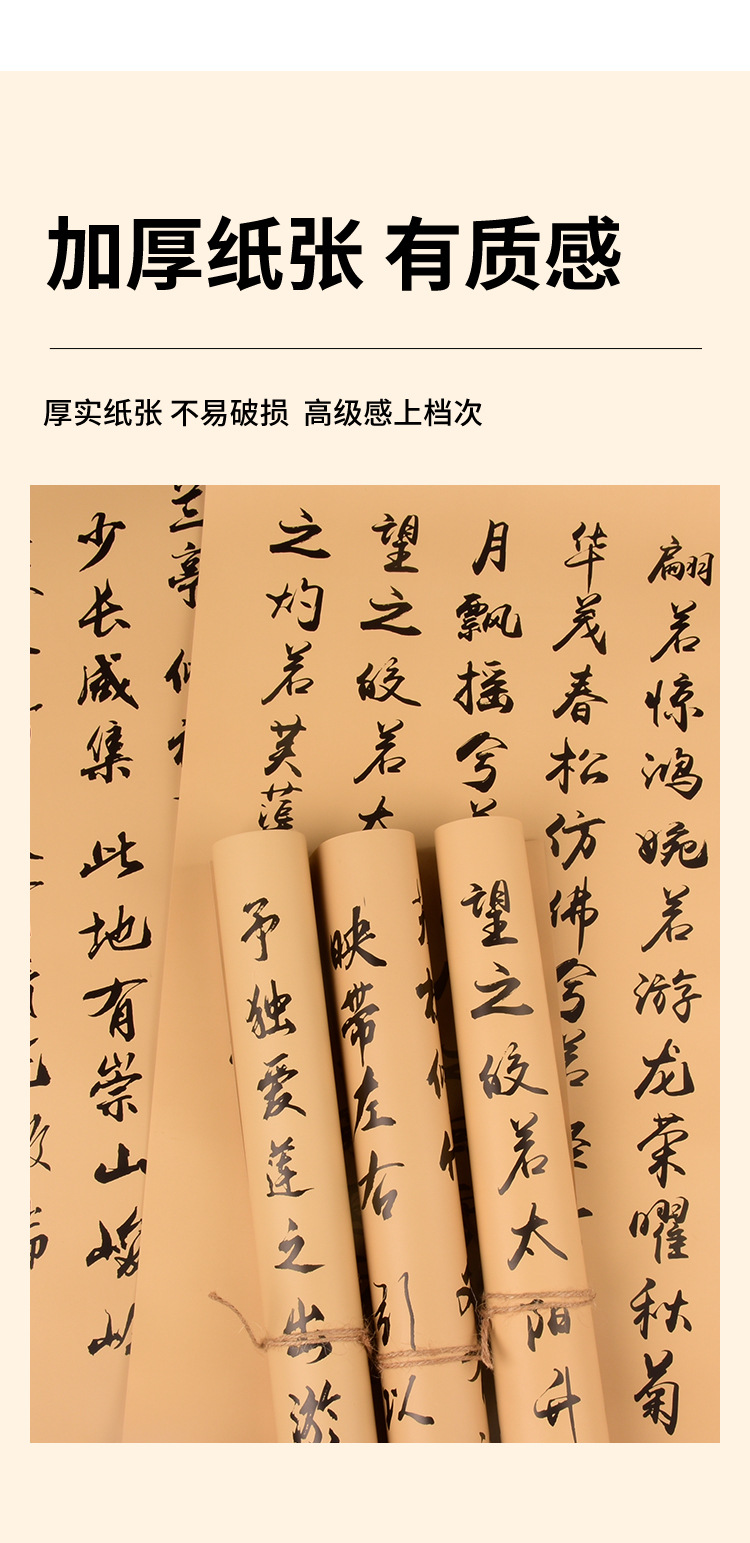 加厚纸张 有质感
厚实纸张 不易破损 高级感上档次
翩若惊鸿婉若游龙荣曜秋菊
华茂春松仿佛兮若
月飘摇兮
望之皎若太
之灼若芙
兰亭
少长咸集 此地有崇山峻
望之皎若太阳升
映带左右 引以
予独爱莲之出淤